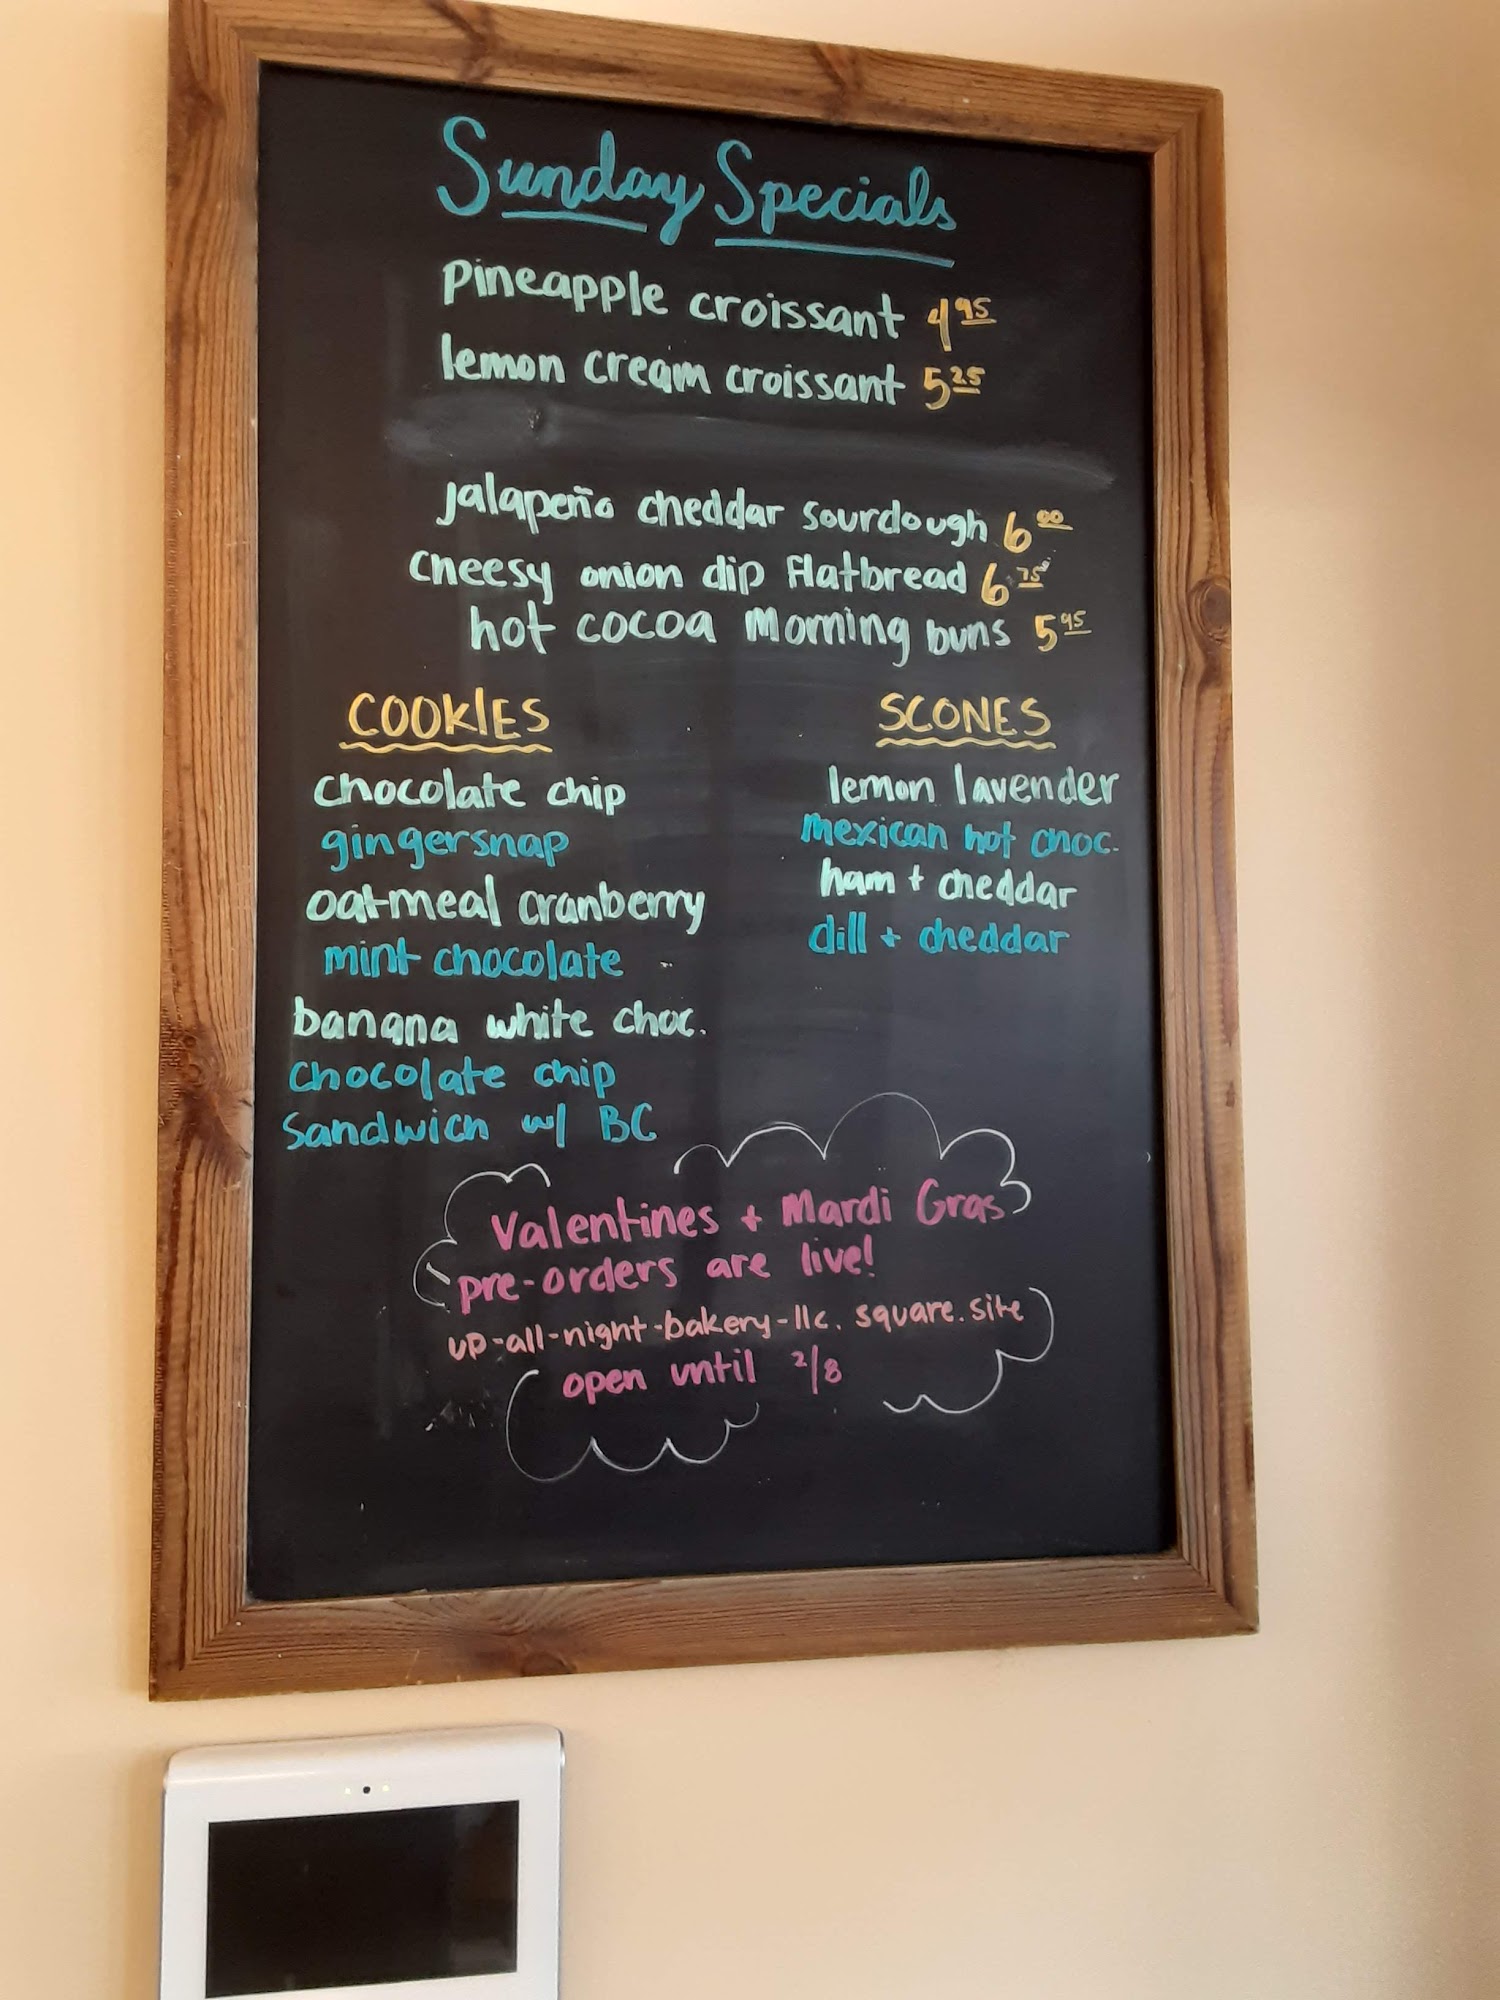 Sunday Specials
pineapple croissant 4.95
lemon cream croissant 5.25
jalapeño cheddar sourdough 6.00
cheesy onion dip flatbread 6.75
hot cocoa morning buns 5.95
COOKIES
chocolate chip
gingersnap
oatmeal cranberry
mint chocolate
banana white choc.
chocolate chip
sandwich w/ BC
SCONES
lemon lavender
mexican hot choc.
ham + cheddar
dill + cheddar
Valentines + Mardi Gras
pre-orders are live!
up-all-night-bakery-llc.square.site
open until 2/8